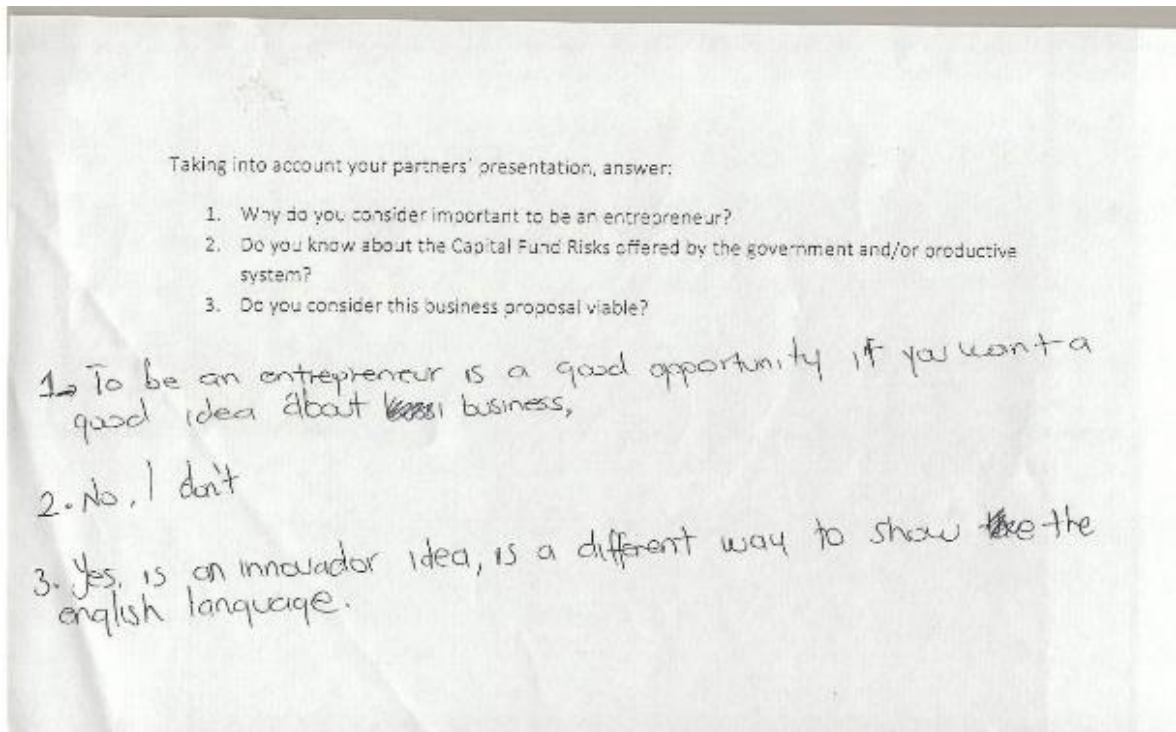 Taking into account your partners' presentation, answer:
1. Why do you consider important to be an entrepreneur?
2. Do you know about the Capital Fund Risks offered by the government and/or productive
system?
3. Do you consider this business proposal viable?
1. To be an entrepreneur is a good opportunity if you want a
good idea about business,
2. No, I don't
3. Yes, is an innovador idea, is a different way to show the
english language.